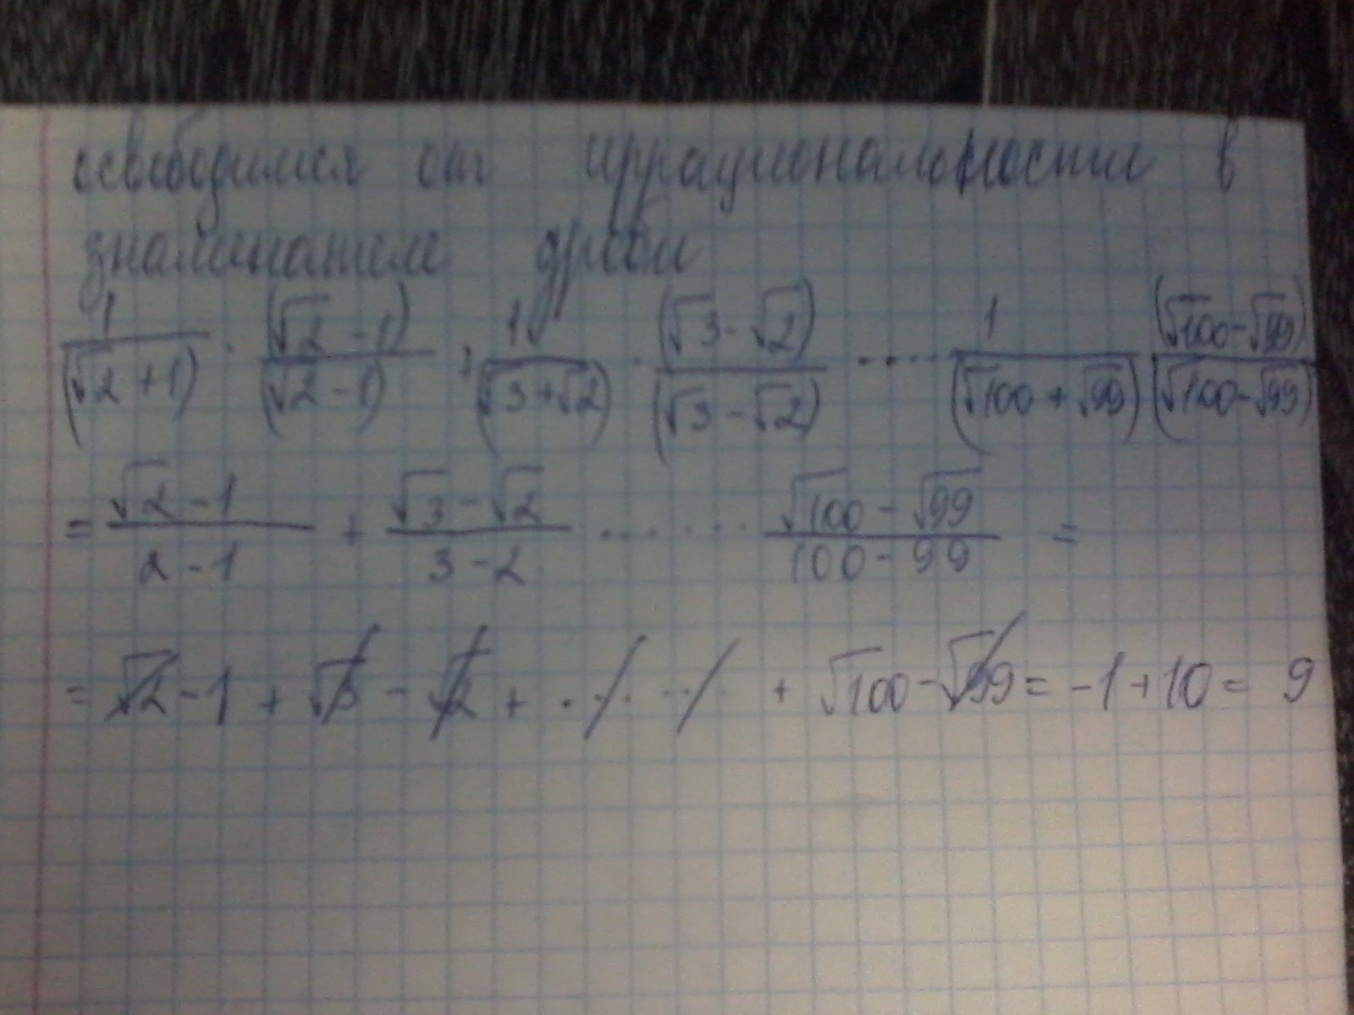 освободимся от иррациональности в
знаминателе дроби
1/(√2+1) · (√2-1)/(√2-1) + 1/(√3+√2) · (√3-√2)/(√3-√2) .... 1/(√100+√99) (√100-√99)/(√100-√99)
= (√2-1)/(2-1) + (√3-√2)/(3-2) ....... (√100-√99)/(100-99) =
= √2-1 + √3 - √2 + ...... + √100-√99 = -1+10 = 9